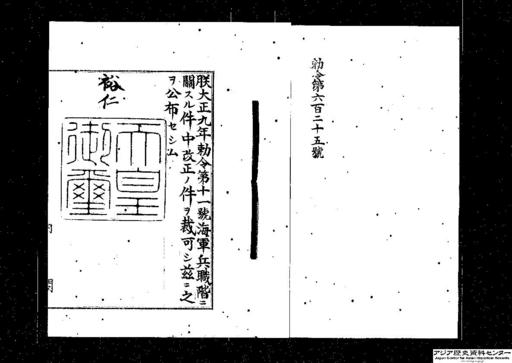 勅令第六百二十五號
朕大正九年勅令第十一號海軍兵職階ニ
關スル件中改正ノ件ヲ裁可シ茲ニ之
ヲ公布セシム
裕仁
天皇
御璽
内閣
アジア歴史資料センター
Japan Center for Asian Historical Records